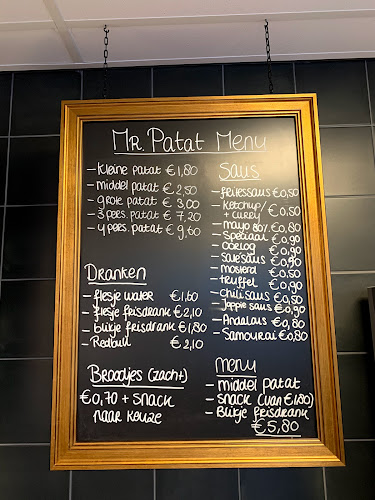 Mr. Patat Menu
- Kleine patat €1,80
- middel patat €2,50
- grote patat €3,00
- 3 pers. patat €7,20
- 4 pers. patat €9,60
Dranken
- flesje water €1,60
- flesje frisdrank €2,10
- blikje frisdrank €1,80
- Redbull €2,10
Broodjes (zacht)
€0,70 + snack
naar keuze
Saus
- fritessaus €0,50
- Ketchup/
+ curry €0,50
- mayo 80% €0,80
- Speciaal €0,90
- oorlog €0,90
- satésaus €0,90
- mosterd €0,50
- truffel €0,90
- Chilisaus €0,50
- Joppie saus €0,90
- Andalous €0,80
- Samourai €0,80
menu
- middel patat
- snack (van €1,80)
- Blikje frisdrank
€5,80